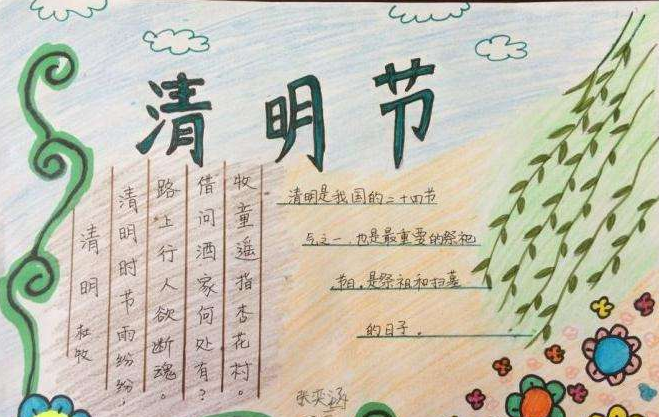 清明节
清明
杜牧
清明时节雨纷纷，
路上行人欲断魂。
借问酒家何处有？
牧童遥指杏花村。
清明是我国的二十四节
气之一，也是最重要的祭祀
节日，是祭祖和扫墓
的日子。
张奕涵